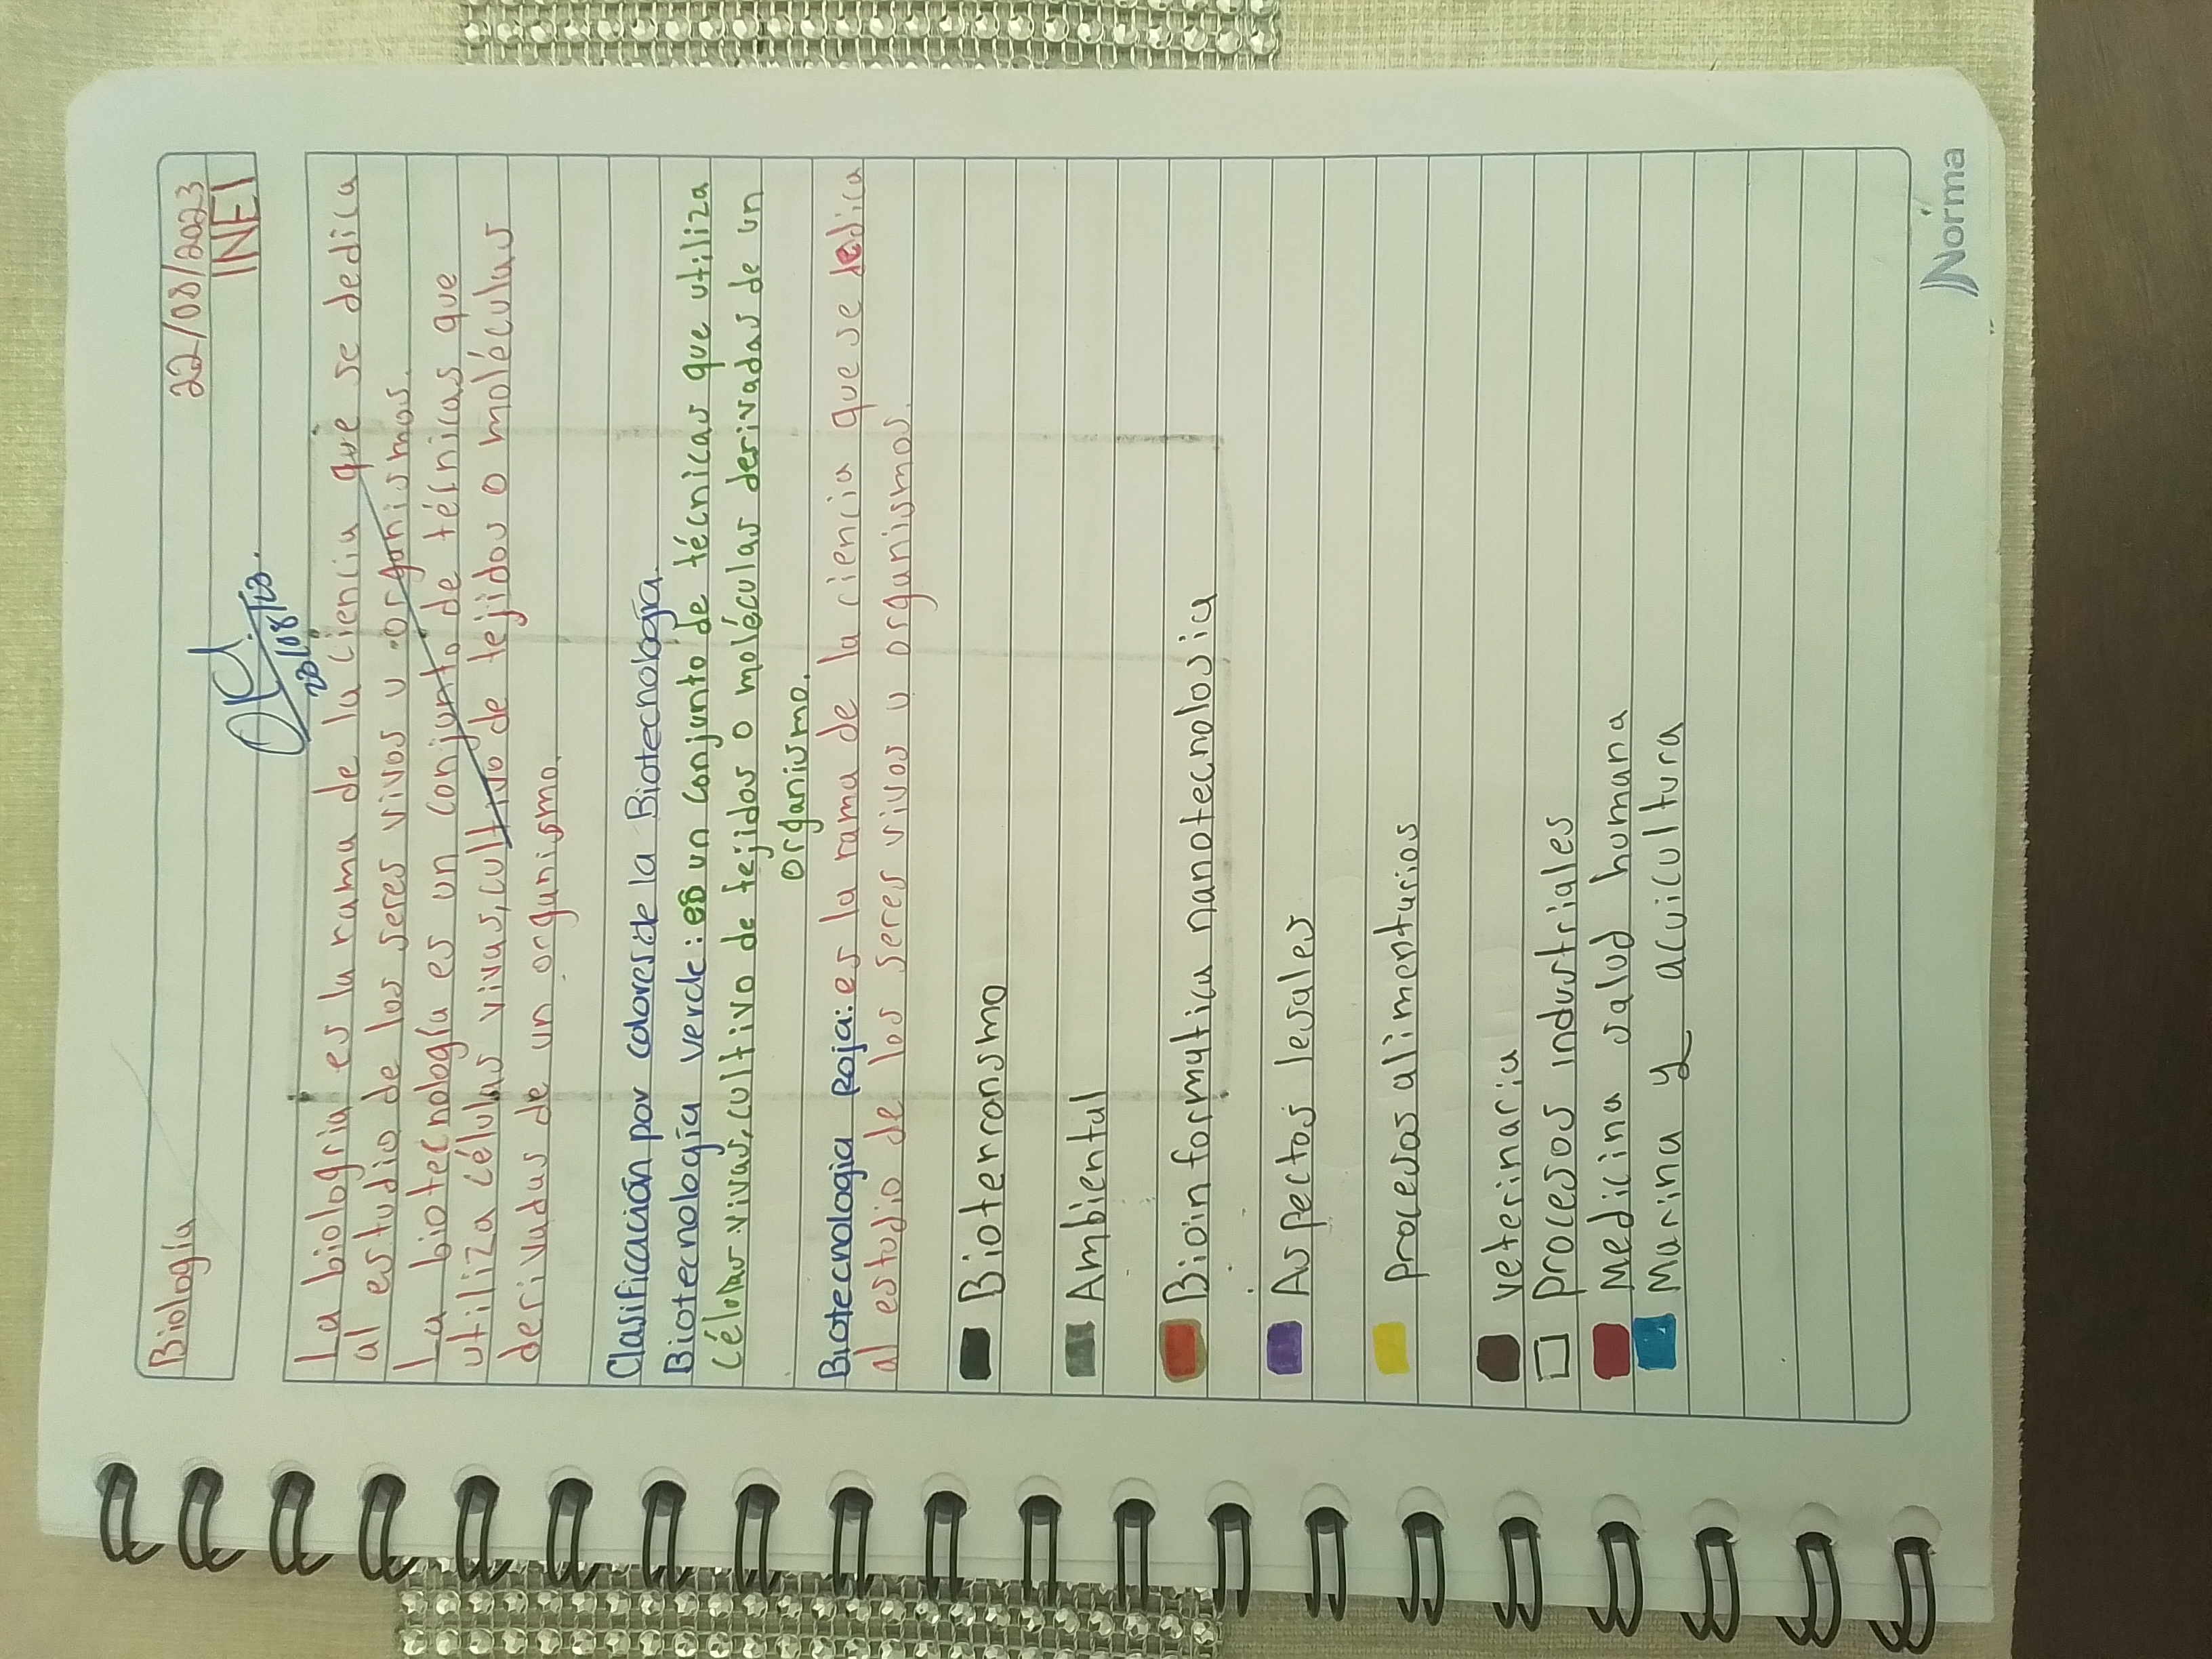 Biología 22/08/2023
INEI
28/08/23.
La biologria es la rama de la ciencia que se dedica
al estudio de los seres vivos u organismos.
La biotecnología es un conjunto de técnicas que
utiliza células vivas, cultivo de tejidos o moléculas
derivadas de un organismo.
Clasificación por colores de la Biotecnología.
Biotecnología verde: es un conjunto de técnicas que utiliza
Célolas vivas, cultivo de tejidos o moléculas derivadas de un
organismo.
Biotecnologia Roja: es la rama de la ciencia que se dedica
al estudio de los seres vivos u organismos.
Bioterronsmo
Ambiental
Bioinformatica nanotecnolosia
Aspectos lesales
Procesos alimentarios
veterinaria
Procesos industriales
Medicina salud humana
Marina y acuicultura
Norma